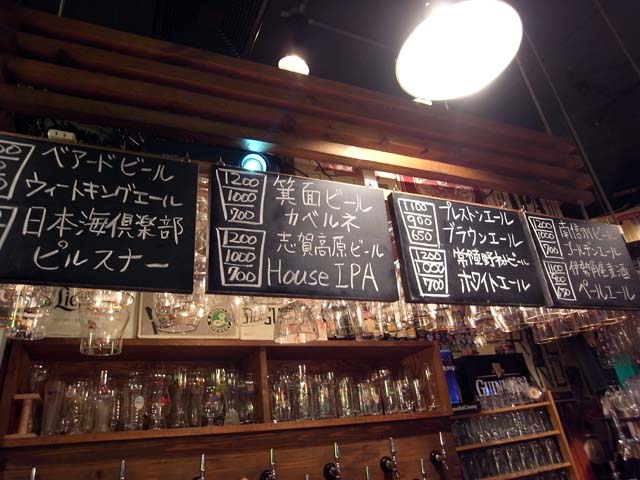 ベアードビール
ウィートキングエール
日本海倶楽部
ピルスナー
1200
1000
700
箕面ビール
カベルネ
1200
1000
700
志賀高原ビール
House IPA
1100
900
650
プレストンエール
ブラウンエール
1200
1000
700
常陸野ネストビール
ホワイトエール
1200
1000
700
南信州ビール
ゴールデンエール
伊勢角屋麦酒
ペールエール